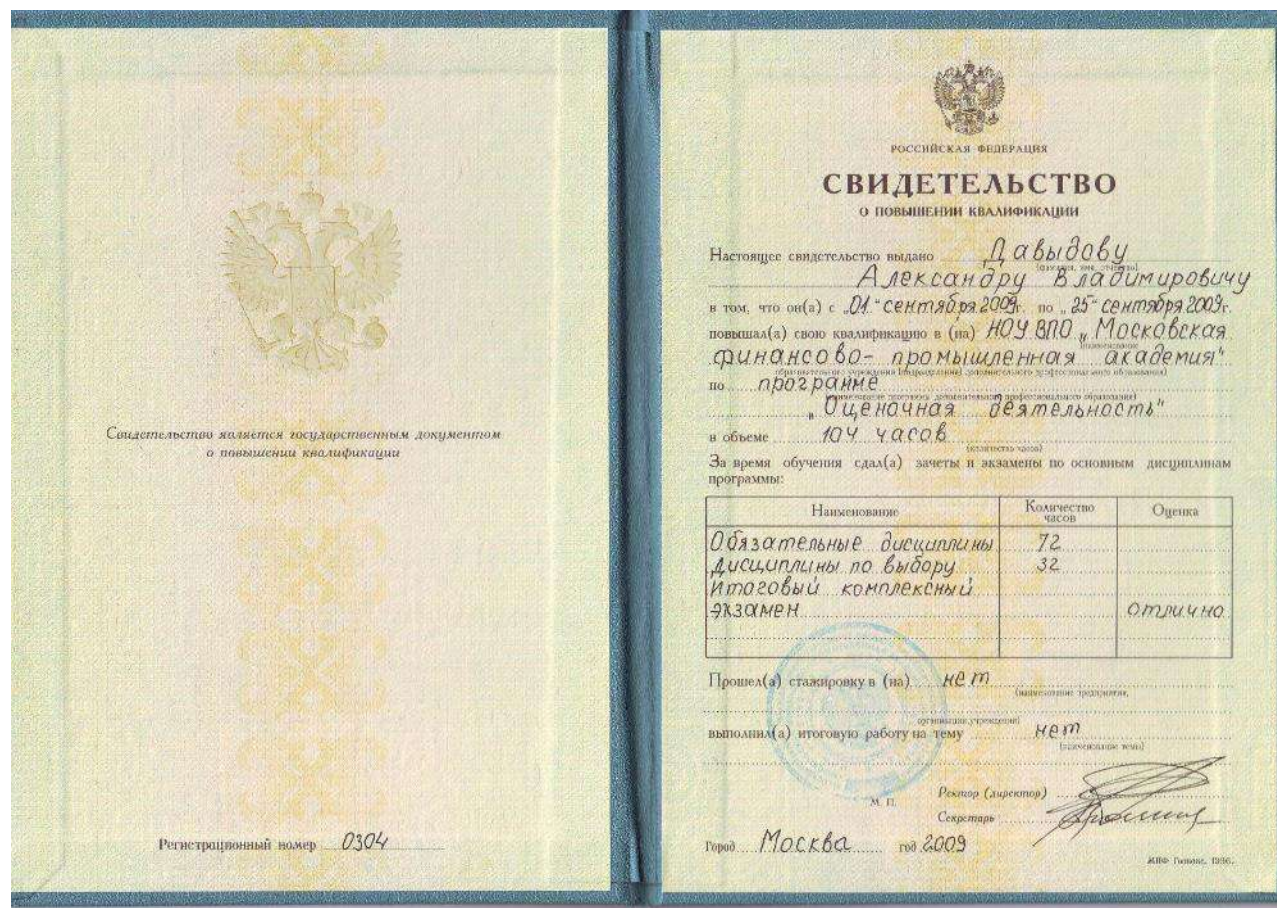 Свидетельство является государственным документом
о повышении квалификации
Регистрационный номер 0304
РОССИЙСКАЯ ФЕДЕРАЦИЯ
СВИДЕТЕЛЬСТВО
О ПОВЫШЕНИИ КВАЛИФИКАЦИИ
Настоящее свидетельство выдано Давыдову
(фамилия, имя, отчество)
Александру Владимировичу
в том, что он(а) с „01" сентября 2009г. по „25" сентября 2009г.
повышал(а) свою квалификацию в (на) НОУ ВПО „Московская
(наименование
финансово-промышленная академия"
образовательного учреждения (подразделения) дополнительного профессионального образования)
по программе
(наименование программы дополнительного профессионального образования)
„Оценочная деятельность"
в объеме 104 часов
(количество часов)
За время обучения сдал(а) зачеты и экзамены по основным дисциплинам
программы:
Наименование Количество часов Оценка
Обязательные дисциплины 72
Дисциплины по выбору 32
Итоговый комплексный
экзамен отлично
Прошел(а) стажировку в (на) нет
(наименование предприятия,
организации, учреждения)
выполнил(а) итоговую работу на тему нет
(наименование темы)
М. П.
Ректор (директор)
Секретарь
Город Москва год 2009
МПФ Гознака. 1996.